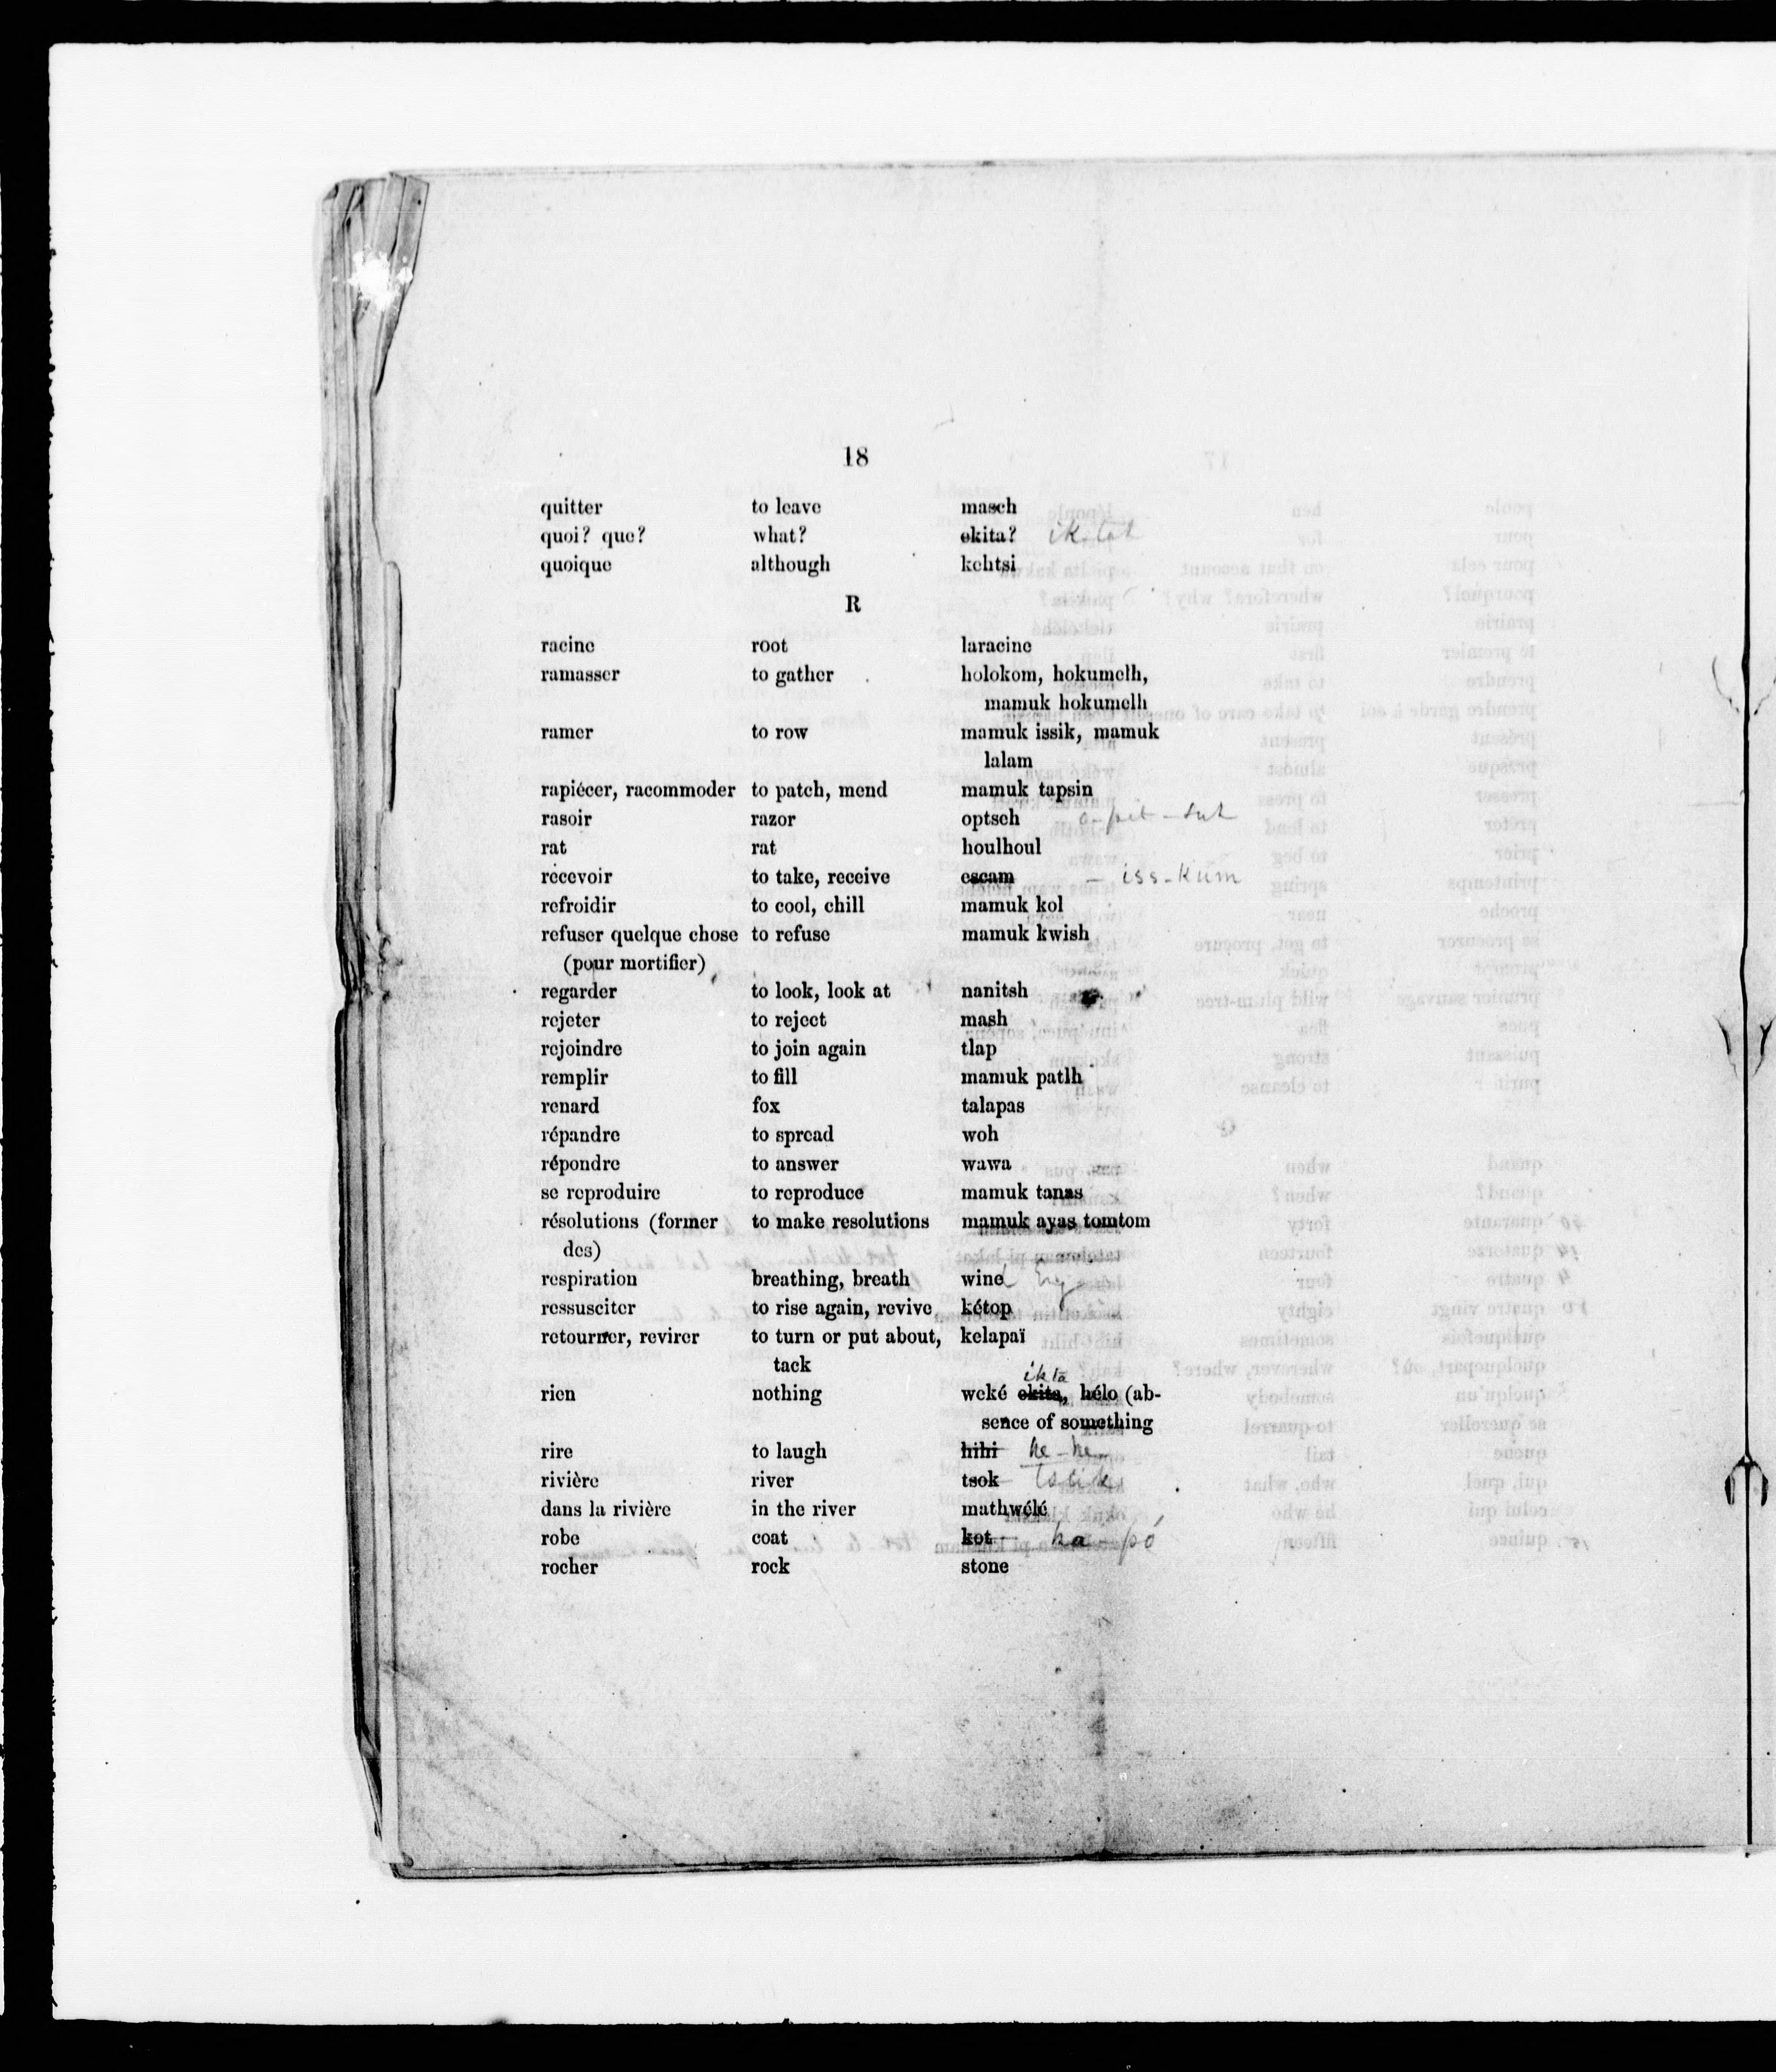 18
quitter to leave masch
quoi? que? what? okita? ik-tah
quoique although kehtsi
R
racine root laracine
ramasser to gather holokom, hokumelh,
mamuk hokumelh
ramer to row mamuk issik, mamuk
lalam
rapiécer, racommoder to patch, mend mamuk tapsin
rasoir razor optsch o-pit-sut
rat rat houlhoul
recevoir to take, receive escam - iss-kum
refroidir to cool, chill mamuk kol
refuser quelque chose to refuse mamuk kwish
(pour mortifier)
regarder to look, look at nanitsh
rejeter to reject mash
rejoindre to join again tlap
remplir to fill mamuk patlh
renard fox talapas
répandre to spread woh
répondre to answer wawa
se reproduire to reproduce mamuk tanas
résolutions (former to make resolutions mamuk ayas tomtom
des)
respiration breathing, breath wine
ressusciter to rise again, revive kétop
retourner, revirer to turn or put about, kelapaï
tack
ikta
rien nothing weké okita, hélo (ab-
sence of something
rire to laugh hihi he-he
rivière river tsok tsuk
dans la rivière in the river mathwélé
robe coat kot ka-pó
rocher rock stone